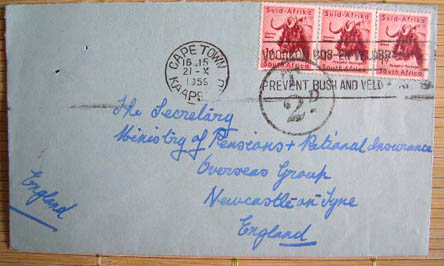 Suid-Afrika Suid-Afrika Suid-Afrika
South Africa South Africa South Africa
CAPE TOWN
16.15
21-X
1955
KAAPSTAD
VOORKOM BOS-EN VELDBRANDE
PREVENT BUSH AND VELD
2D
The Secretary
Ministry of Pensions + National Insurance
Overseas Group
Newcastle on Tyne
England
England